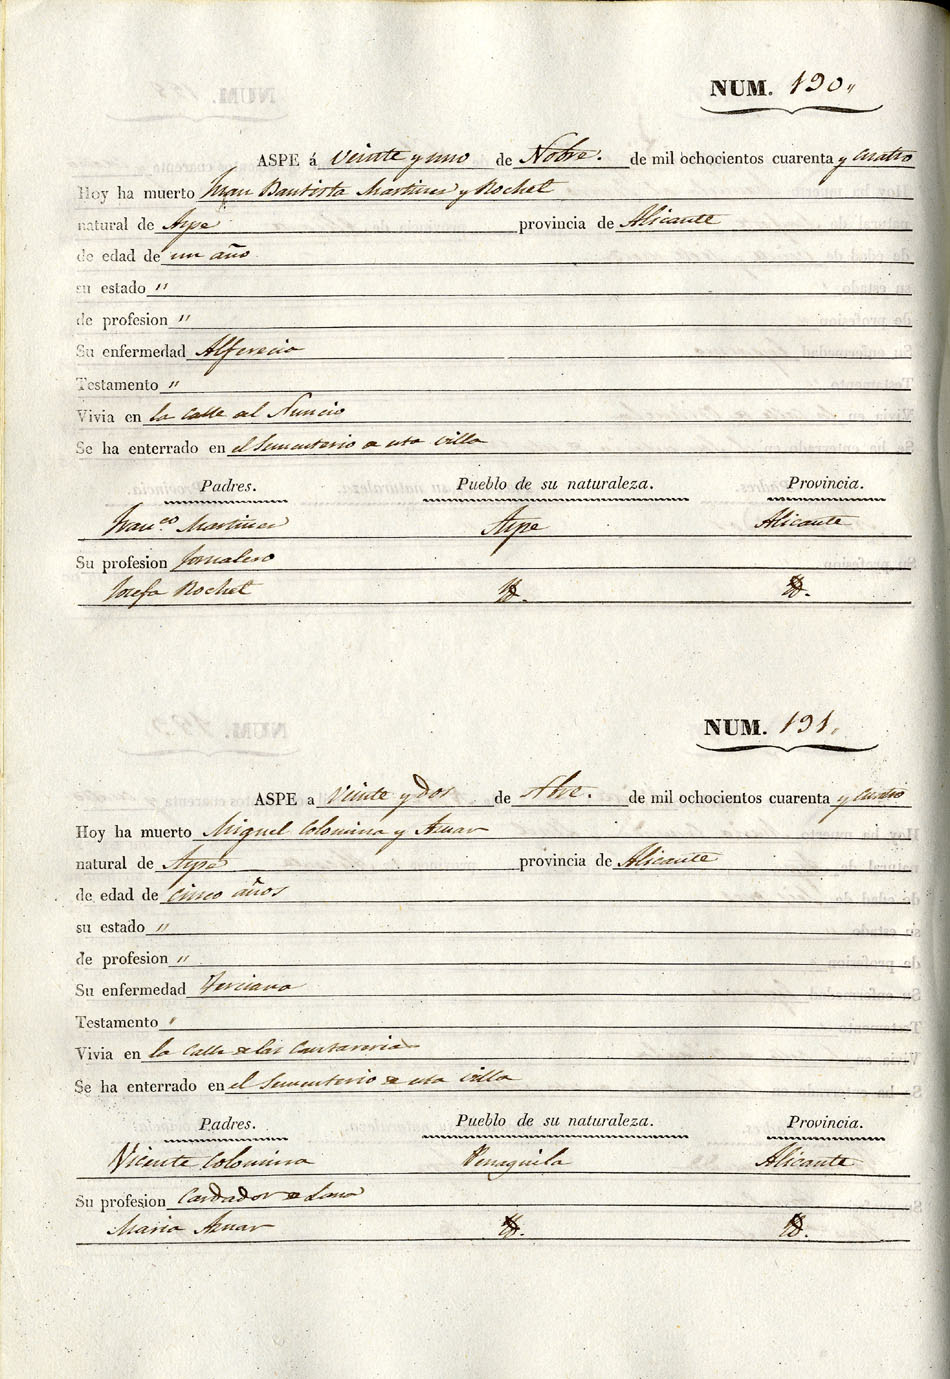 NUM. 190.
ASPE á veinte y uno de Nobre. de mil ochocientos cuarenta y cuatro
Hoy ha muerto Juan Bautista Martinez y Bochet
natural de Aspe provincia de Alicante
de edad de un año
su estado "
de profesion "
Su enfermedad Alferecia
Testamento "
Vivia en la calle del Nuncio
Se ha enterrado en el sementerio de esta villa
Padres. Pueblo de su naturaleza. Provincia.
Franco. Martinez Aspe Alicante
Su profesion Jornalero
Josefa Bochet Yd. Yd.
NUM. 191.
ASPE a veinte y dos de Nbre. de mil ochocientos cuarenta y cuatro
Hoy ha muerto Miguel Colomina y Aznar
natural de Aspe provincia de Alicante
de edad de cinco años
su estado "
de profesion "
Su enfermedad Terciana
Testamento "
Vivia en la calle de las
Se ha enterrado en el sementerio de esta villa
Padres. Pueblo de su naturaleza. Provincia.
Vicente Colomina Penaguila Alicante
Su profesion Cardador de Lana
Maria Aznar Yd. Yd.